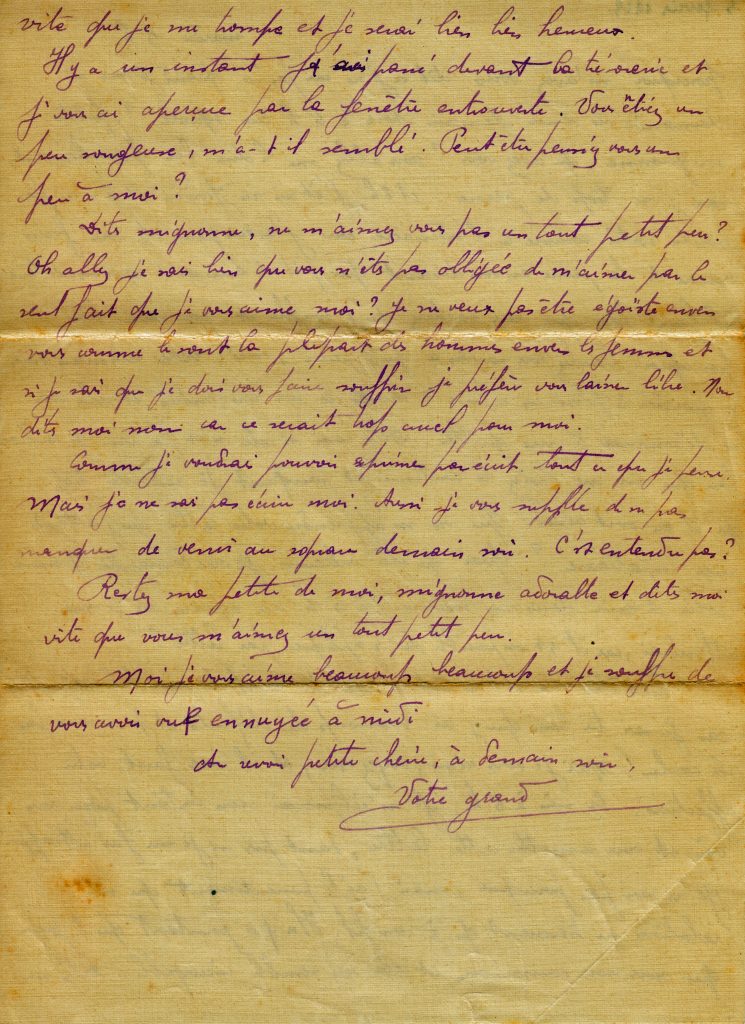 vite que je me trompe et je serai bien bien heureux.
Il y a un instant j'ai passé devant la trésorerie et
j vous ai aperçue par la fenêtre entrouverte. Vous étiez un
peu songeuse, m'a-t il semblé. Peut être pensiez vous un
peu à moi ?
Dites mignonne, ne m'aimez vous pas un tout petit peu ?
Oh allez je sais bien que vous n'êtes pas obligée de m'aimer par le
seul fait que je vous aime moi ? Je ne veux pas être égoïste envers
vous comme le sont la plupart des hommes envers les femmes et
si je sais que je dois vous faire souffrir je préfère vous laisser libre. Non
dites moi non car ce serait trop cruel pour moi.
Comme je voudrai pouvoir exprimer par écrit tout ce que je pense.
Mais je ne sais pas écrire moi. Aussi je vous supplie de ne pas
manquer de venir au square demain soir. C'est entendu pas ?
Restez ma petite de moi, mignonne adorable et dites moi
vite que vous m'aimez un tout petit peu.
Moi, je vous aime beaucoup beaucoup et je souffre de
vous avoir vue ennuyée à midi
Au revoir petite chérie, à demain soir,
Votre grand